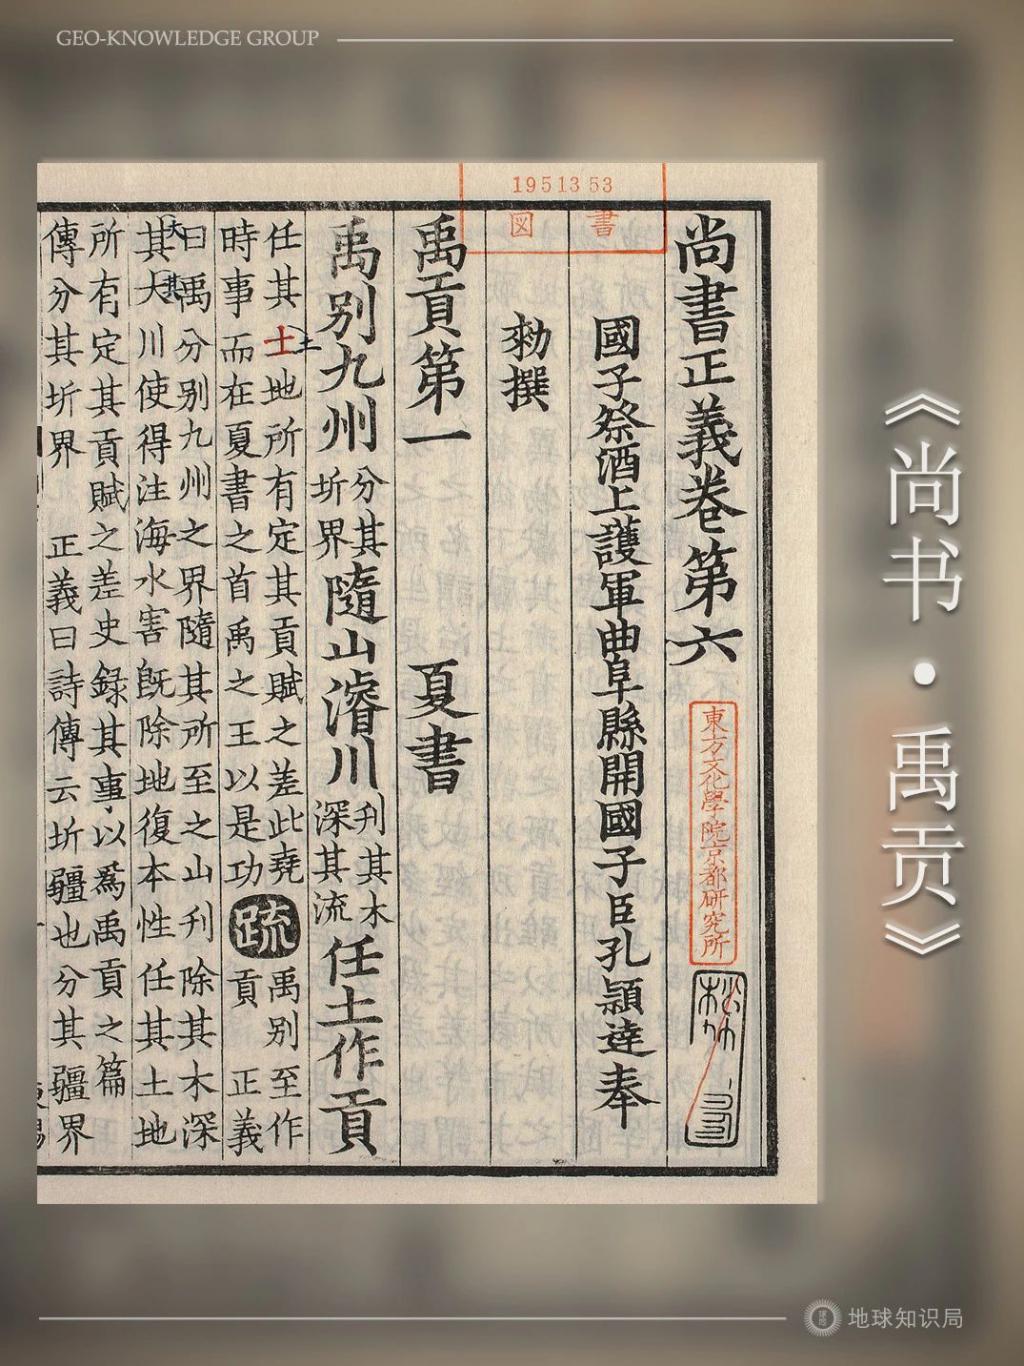 GEO-KNOWLEDGE GROUP
《尚书·禹贡》
19513 53
図
書
尚書正義卷第六
東方文化學院京都研究所
國子祭酒上護軍曲阜縣開國子臣孔頴達奉
勑撰
禹貢第一 夏書
禹别九州分其圻界隨山濬川刋其木深其流任土作貢
任其土地所有定其貢賦之差此堯時事而在夏書之首禹之王以是功疏禹别至作貢 正義
曰禹分别九州之界隨其所至之山刋除其木深其大川使得注海水害旣除地復本性任其土地
所有定其貢賦之差史録其事以爲禹貢之篇
傳分其圻界 正義曰詩傳云圻疆也分其疆界
地球知识局